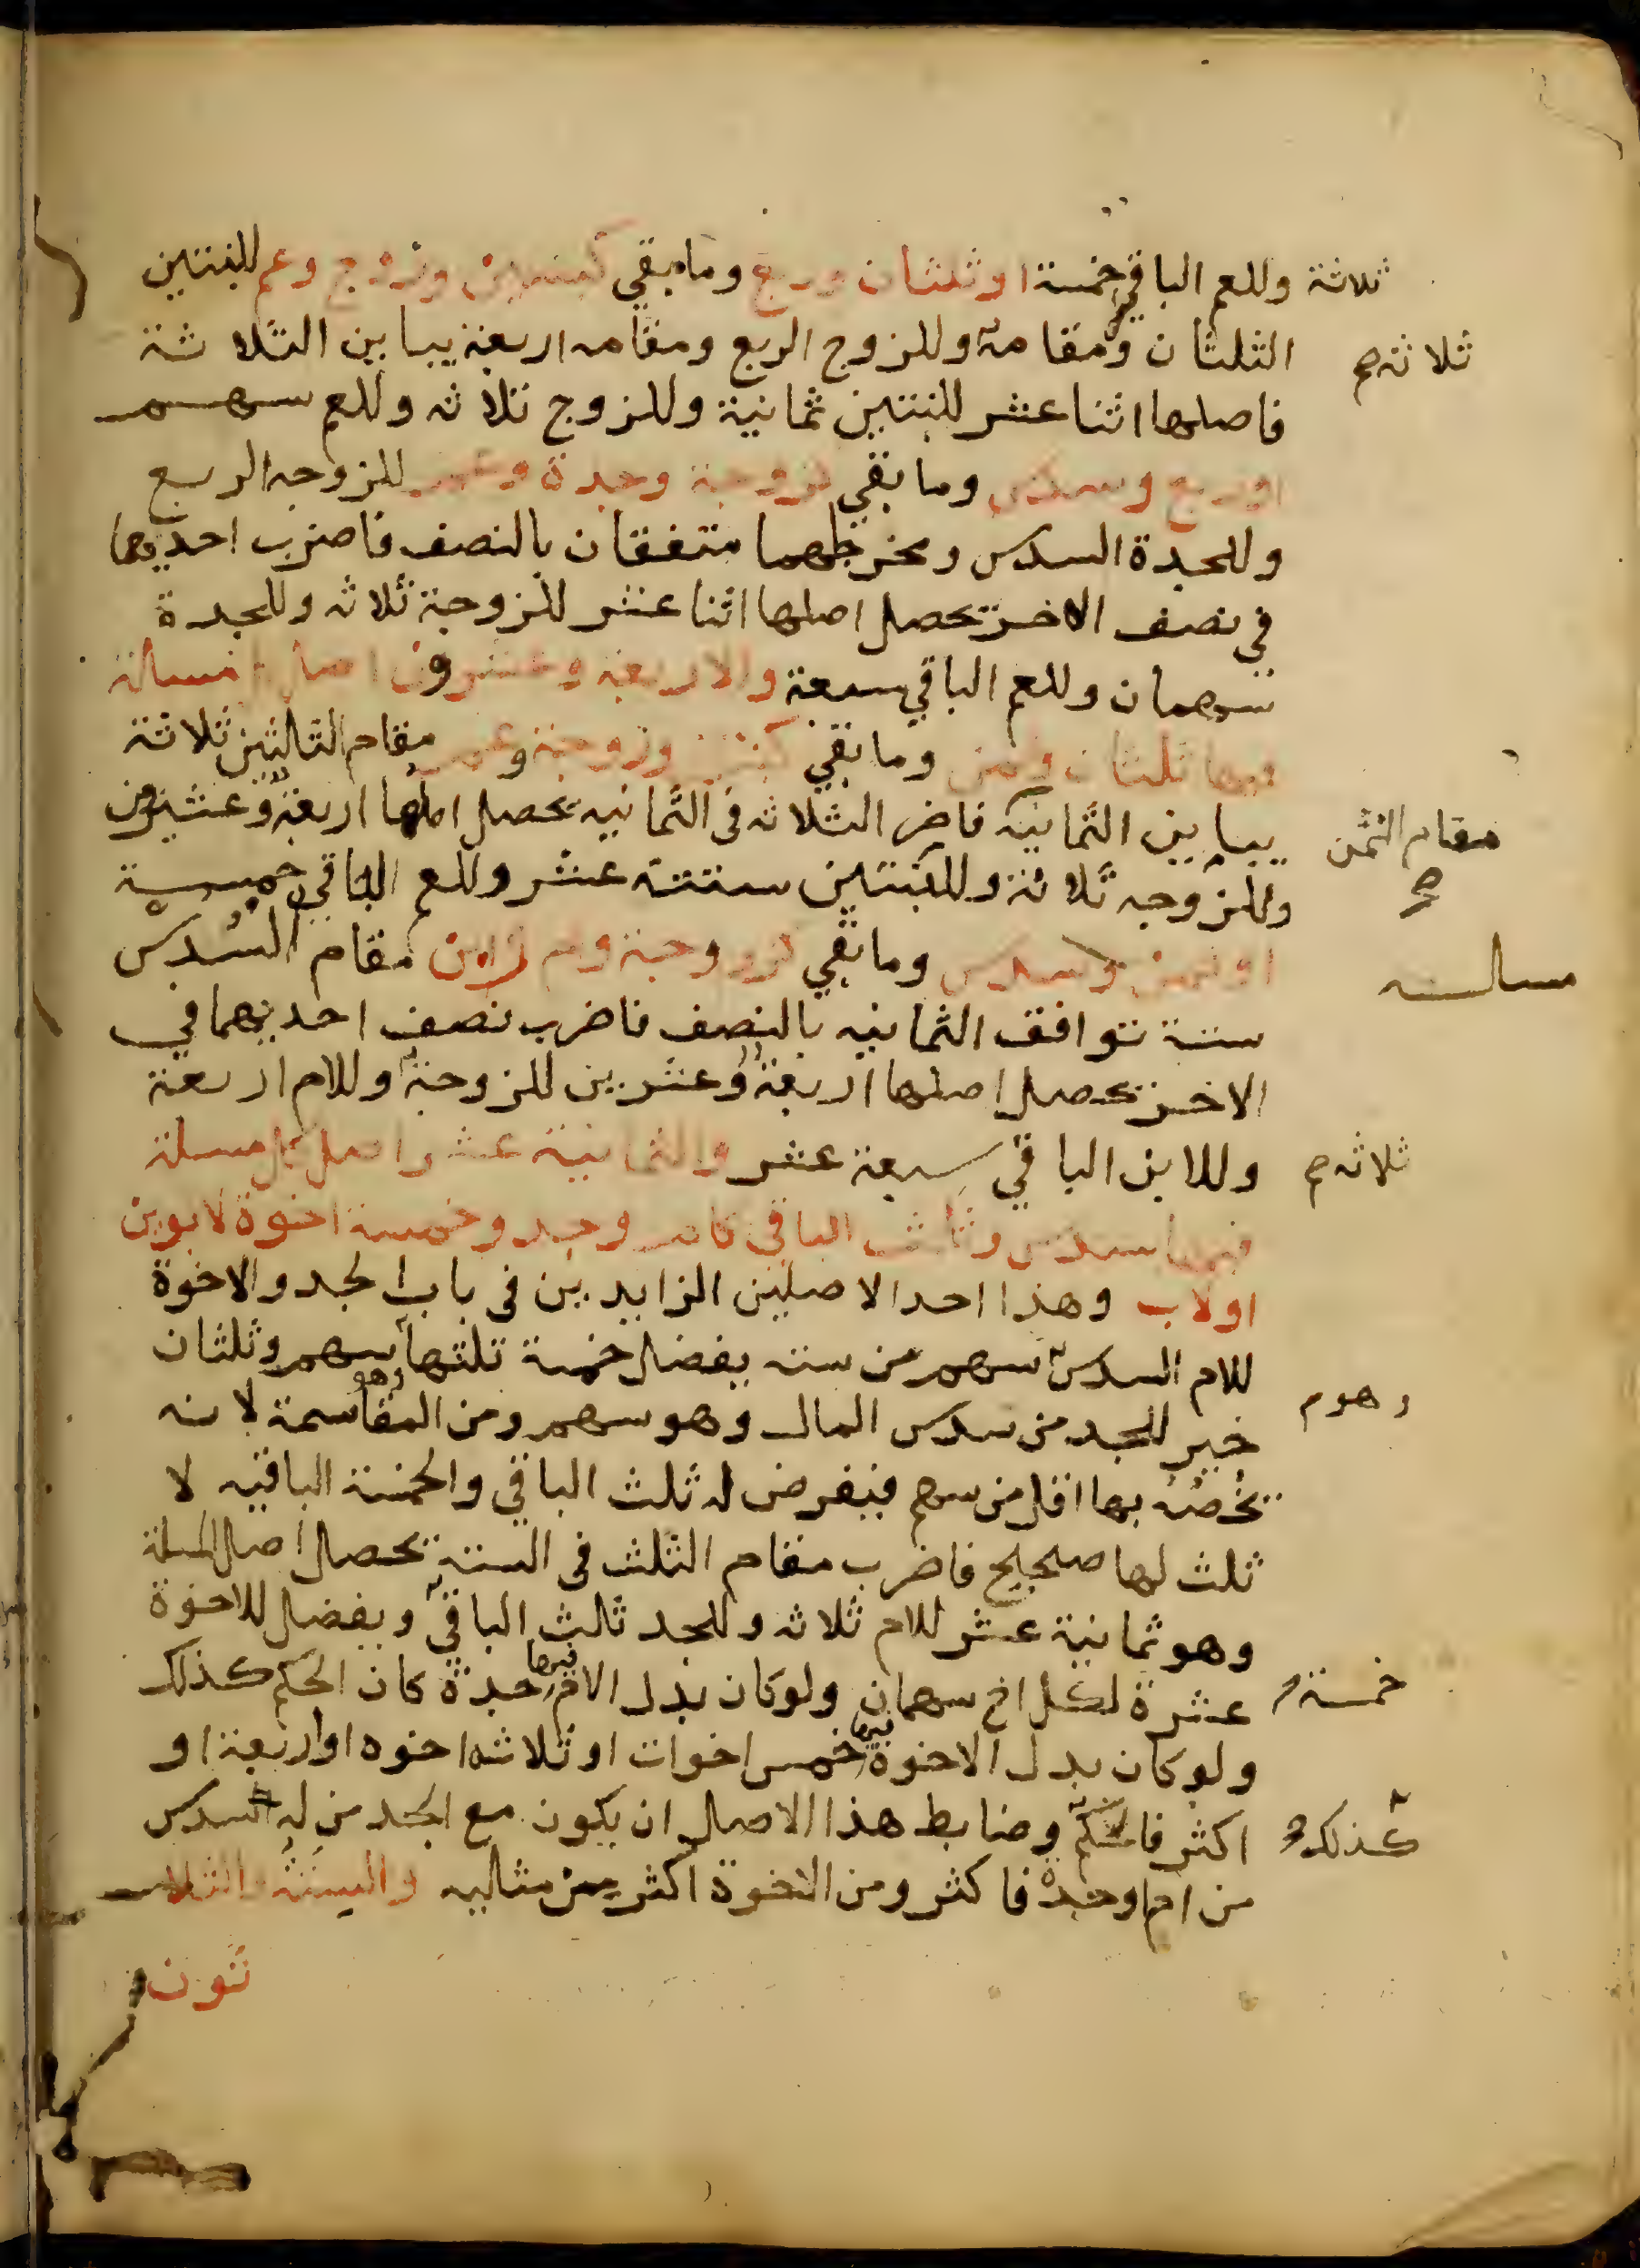 ثلاثة وللعم الباقي خمسة او ثلثان وربع وما بقي كبنتين وزوج وعم للبنتين
الثلثان ومقامه وللزوج الربع ومقامه اربعة يباين الثلاثة
ثلاثه صح
فاصلها اثنا عشر للبنتين ثمانية وللزوج ثلاثه وللعم سهم
او ربع وسدس وما بقي كزوجة وجدة وعم للزوجه الربع
وللجدة السدس ومخرجهما متفقان بالنصف فاضرب احديهما
في نصف الاخر تحصل اصلها اثنا عشر للزوجة ثلاثه وللجدة
سهمان وللعم الباقي سبعة والاربعة وعشرون اصل مسالة
فيها ثلثان وثمن وما بقي كبنتين وزوجة وعم مقام الثالثين ثلاثة
يباين الثمانية فاضر الثلاثه فى الثمانيه تحصل اصلها اربعة وعشرون
مقام الثمن
صح
وللزوجه ثلاثة وللبنتين ستة عشر وللعم الباقي خمسة
او ثمن وسدس وما بقي كزوجة وام وابن مقام السدس
مسالــه
ستة توافق الثمانيه بالنصف فاضرب نصف احديهما في
الاخر تحصل اصلها اربعة وعشرين للزوجة وللام اربعة
وللابن الباقي سبعة عشر والثمانية عشر اصل كل مسلة
ثلاثه صح
فيها سدس وثلث الباقي كام وجد وخمسة اخوة لابوين
اولاب وهذا احد الاصلين الزايدين فى باب الجد والاخوة
للام السدس سهم من سته يفضل خمسة ثلثها سهم وثلثان
خير للجد من سدس المال وهو سهم ومن المقاسمة لانه
وهو م
يخصه بها اقل من سهم فيفرض له ثلث الباقي والخمسة الباقيه لا
ثلث لها صحيح فاضرب مقام الثلث فى الستة تحصل اصل المسلة
وهو ثمانية عشر للام ثلاثه وللجد ثالث الباقي ويفضل للاخوة
عشرة لكل اخ سهمان ولو كان بدل الام فيها جدة كان الحكم كذلك
خمسة
ولو كان بدل الاخوة فيها خمس اخوات او ثلاثه اخوه او اربعة او
اكثر فالحكم وضابط هذا الاصل ان يكون مع الجد من له السدس
كذلك
من ام او جدة فاكثر ومن الاخوة اكثر من مثاليه والستة والثلا
ثون